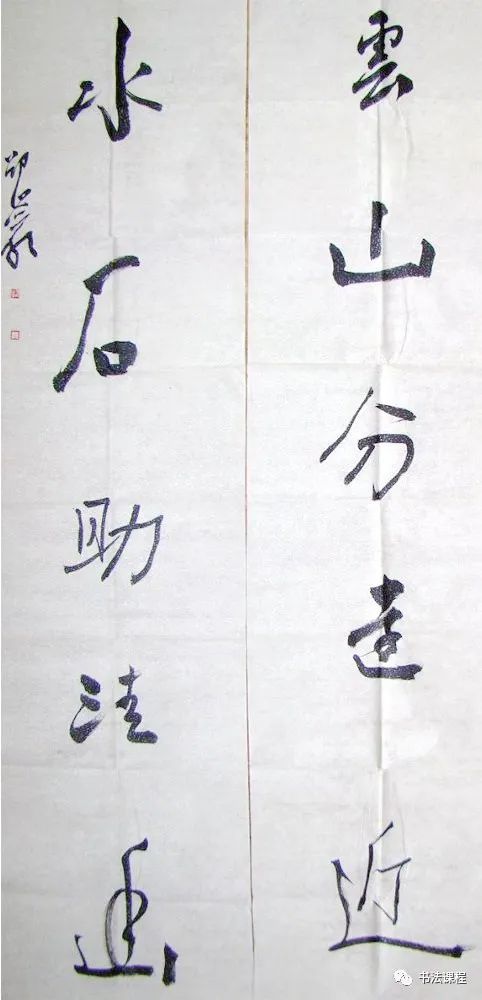 雲山分遠近
水石助清幽
书法课程